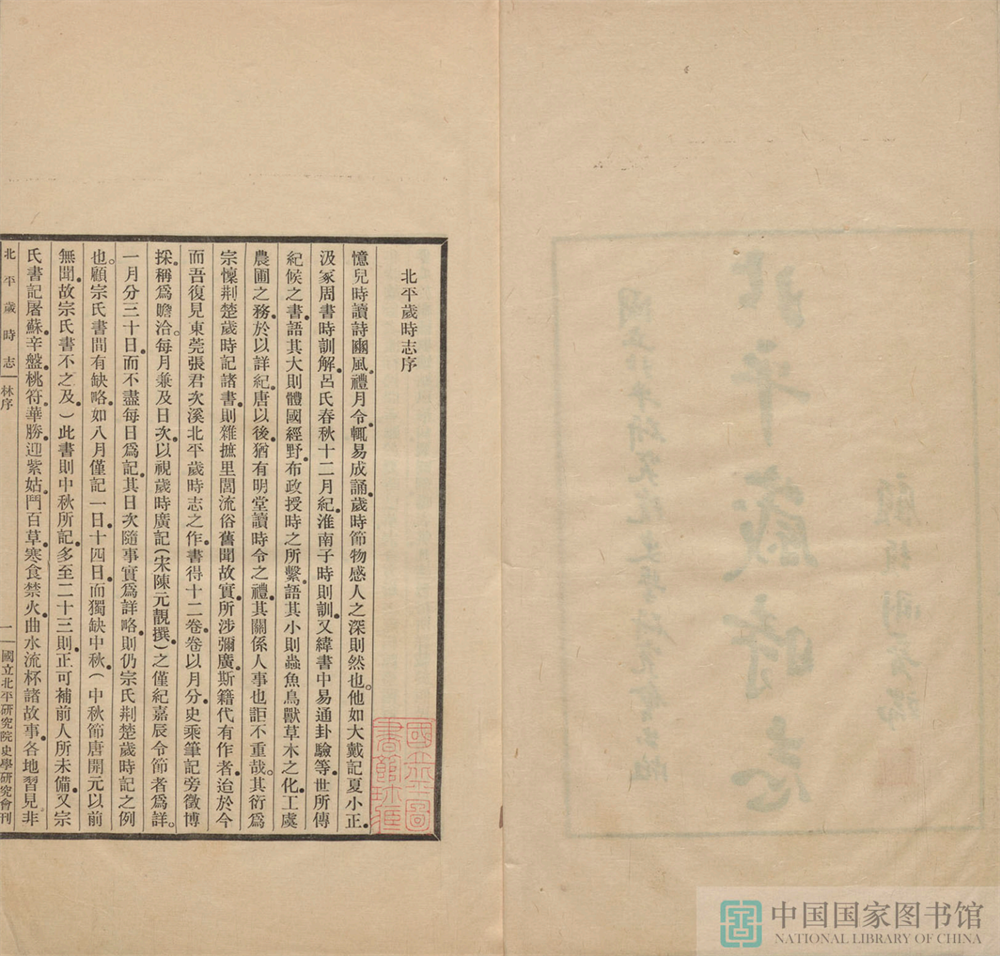 北平歲時志序
憶兒時讀詩豳風。禮月令。輒易成誦。歲時節物感人之深則然也。他如大戴記夏小正。
汲冢周書時訓解。呂氏春秋十二月紀。淮南子時則訓。又緯書中易通卦驗等。世所傳
紀候之書。語其大則體國經野。布政授時之所繫。語其小則蟲魚鳥獸草木之化。工虞
農圃之務。於以詳紀。唐以後。猶有明堂讀時令之禮。其關係人事也詎不重哉。其衍爲
宗懍荆楚歲時記諸書。則雜摭里閭流俗舊聞故實。所涉彌廣。斯籍代有作者。迨於今
而吾復見東莞張君次溪北平歲時志之作。書得十二卷。卷以月分。史乘筆記旁徵博
採。稱爲瞻洽。每月兼及日次。以視歲時廣記(宋陳元靚撰)之僅紀嘉辰令節者爲詳。
一月分三十日。而不盡每日爲記。其日次隨事實爲詳略。則仍宗氏荆楚歲時記之例
也。顧宗氏書間有缺略。如八月僅記一日。十四日。而獨缺中秋。(中秋節唐開元以前
無聞。故宗氏書不之及。)此書則中秋所記。多至二十三則。正可補前人所未備。又宗
氏書記屠蘇。辛盤。桃符。華勝。迎紫姑。鬥百草。寒食禁火。曲水流杯諸故事。各地習見非
北平歲時志 林序 一 國立北平研究院史學研究會刊
中国国家图书馆
NATIONAL LIBRARY OF CHINA